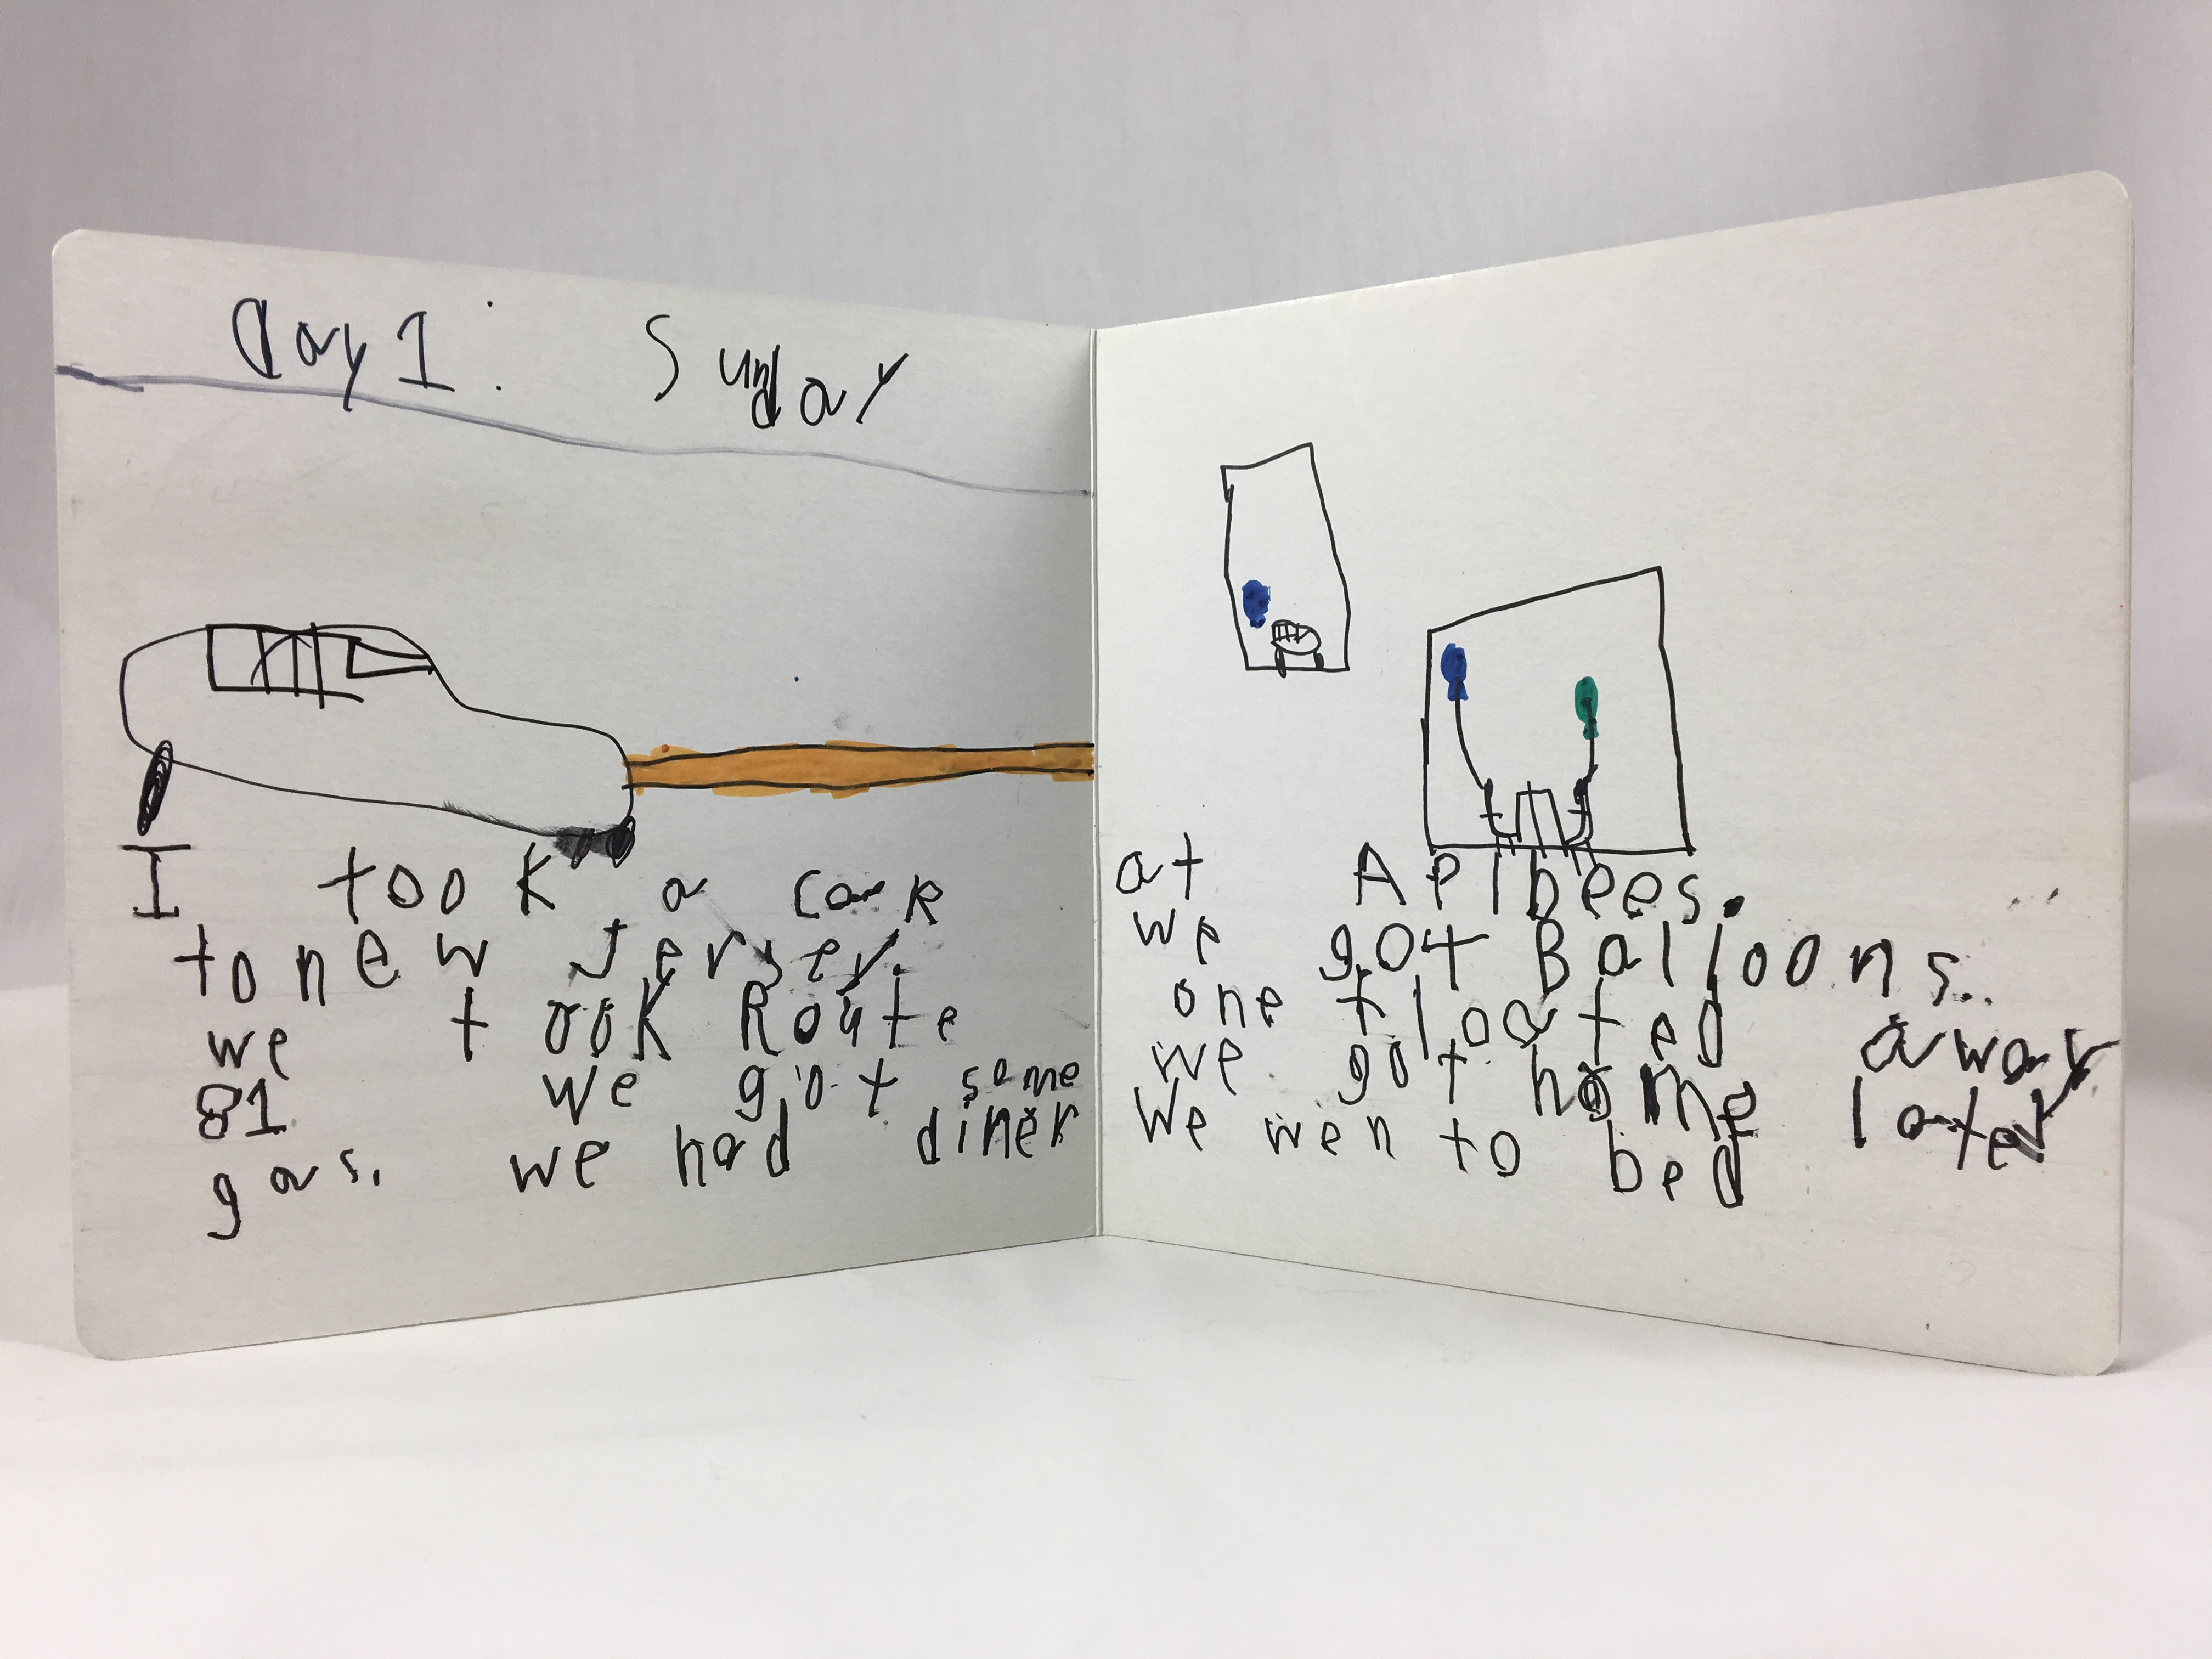 Day 1: Sunday
I took a car
to new Jersey.
we took Route
81 we got some
gas. we had diner
at Aplbees.
we got Balloons.
one floated away
we got home later
We wen to bed